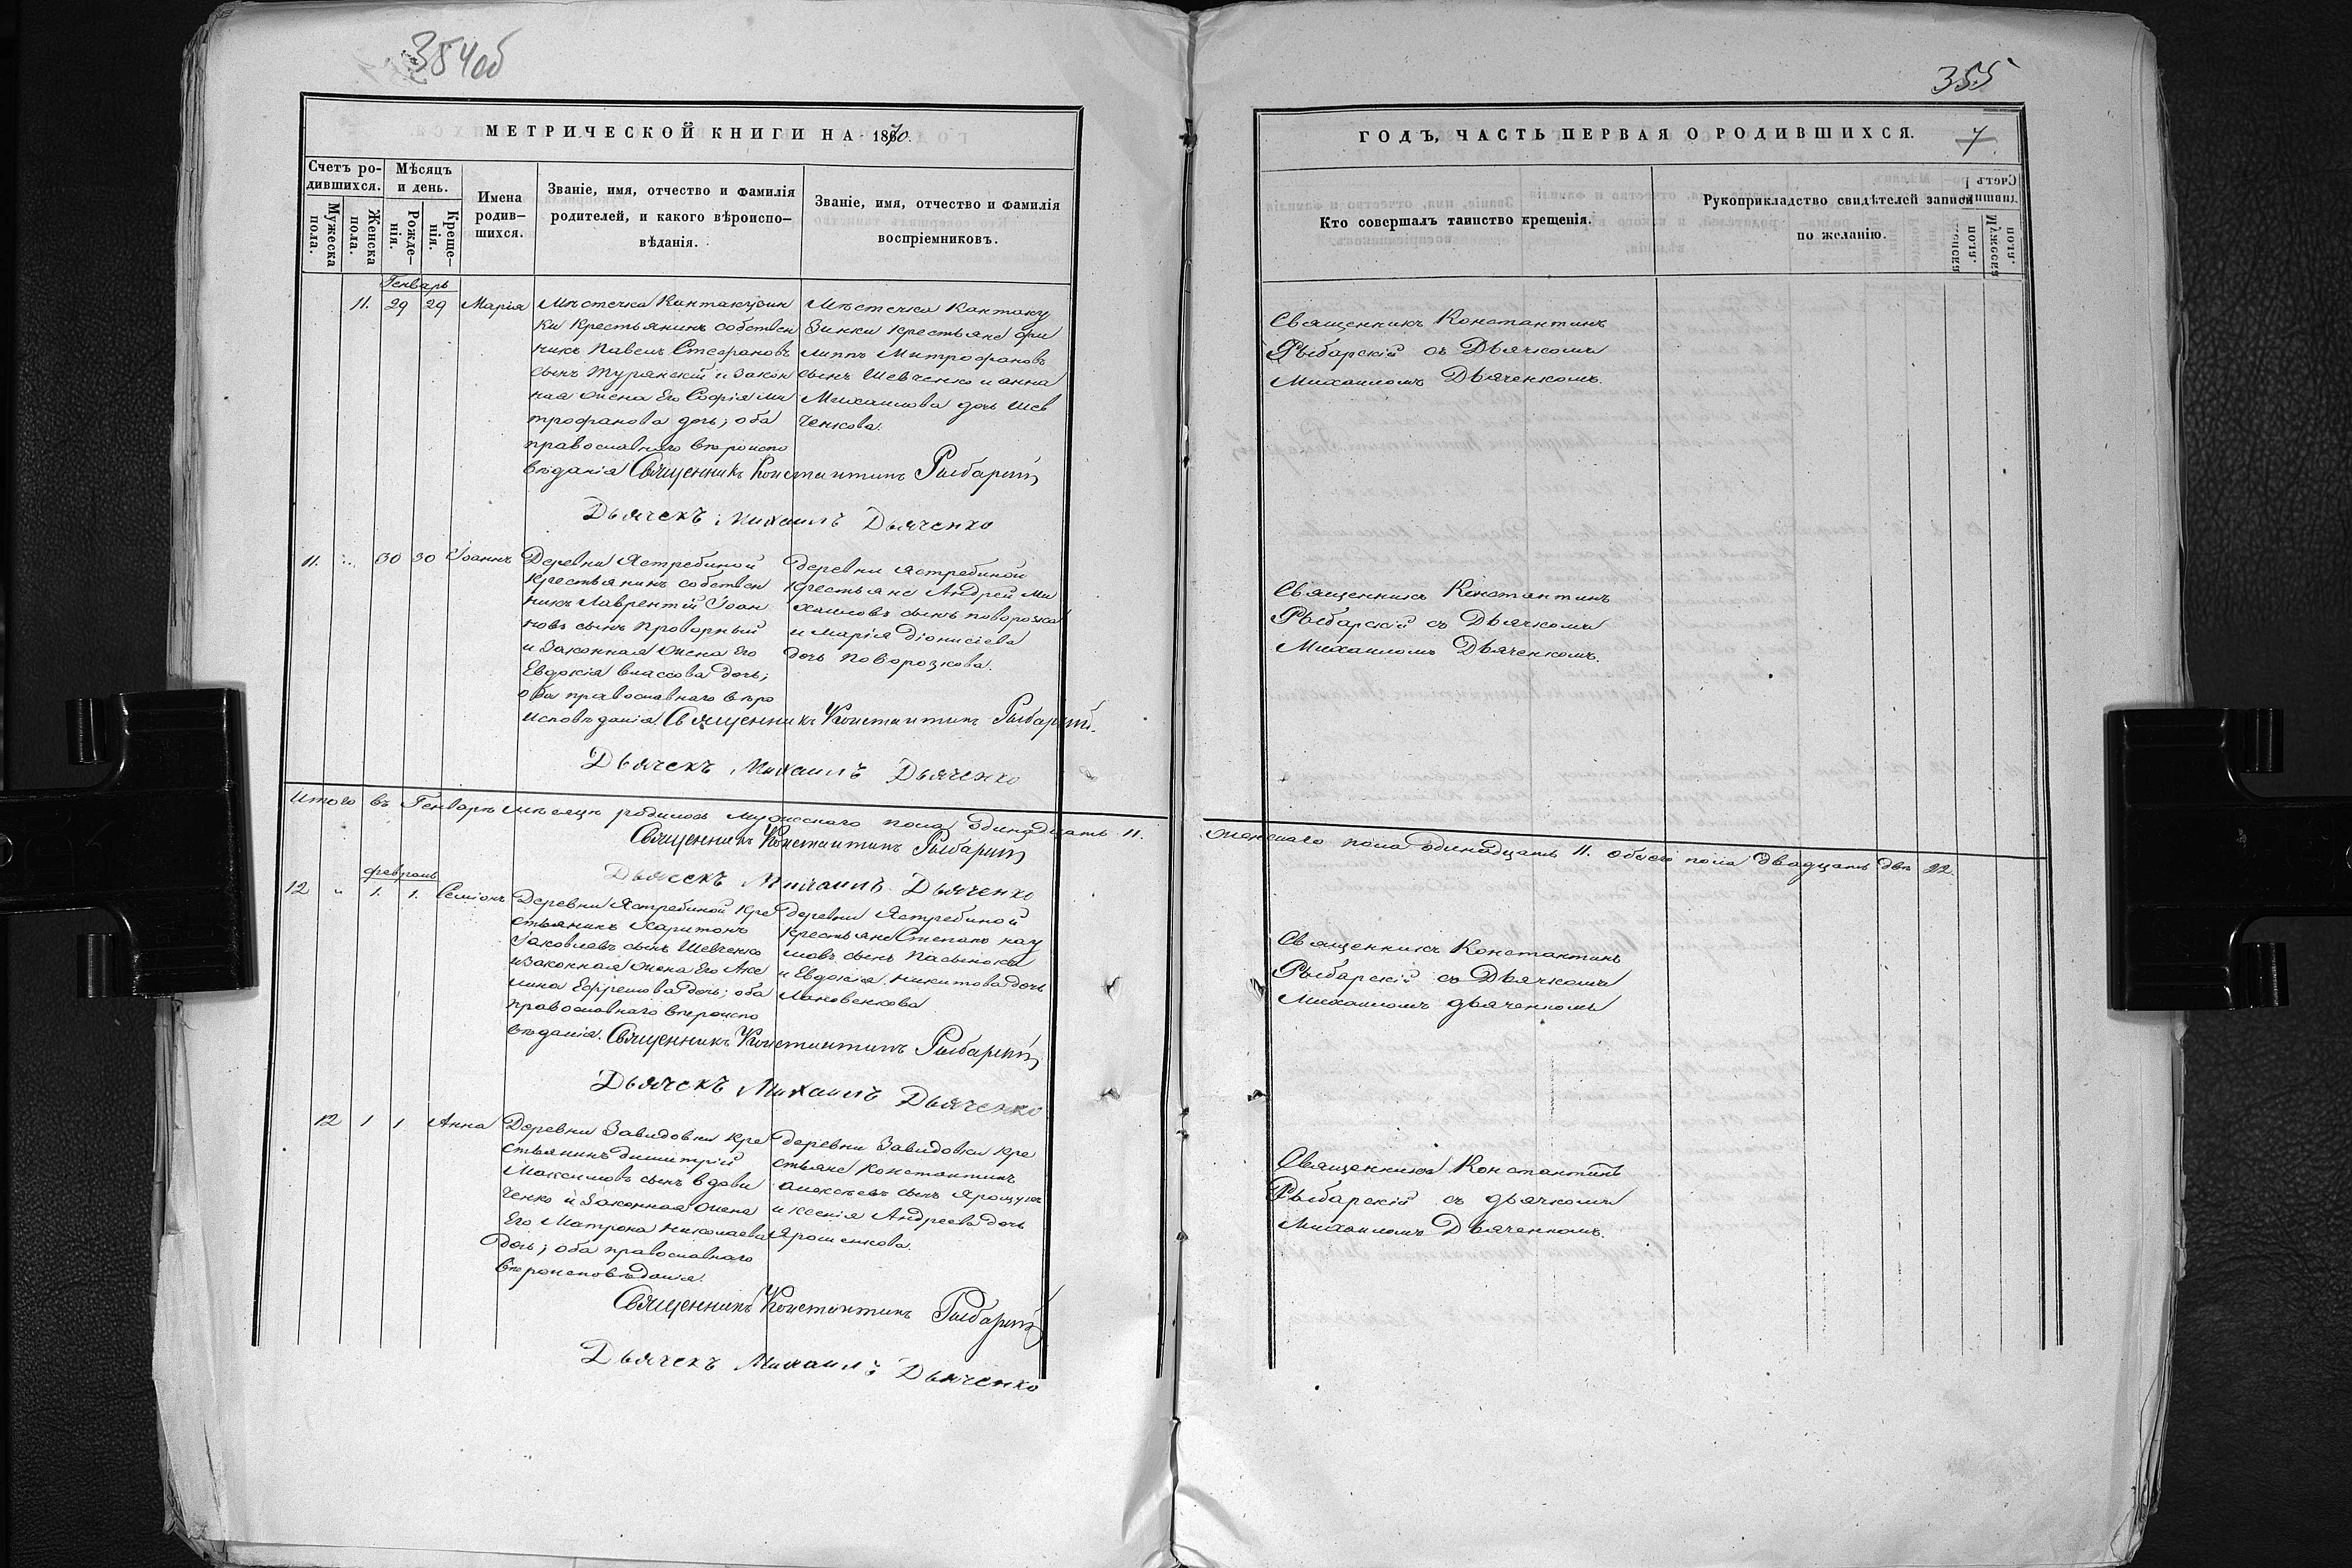 354об
МЕТРИЧЕСКОЙ КНИГИ НА 1870.
Счетъ ро-
дившихся.
Мѣсяцъ
и день.
Мужеска
пола.
Женска
пола.
Рожде-
нія.
Креще-
нія.
Имена
родив-
шихся.
Званіе, имя, отчество и фамилія
родителей, и какого вѣроиспо-
вѣданія.
Званіе, имя, отчество и фамилія
воспріемниковъ.
Генварь
11. 29 29 Марія
Мѣстечка Кантакузин
ки крестьянинъ собствен
никъ Павелъ Стефановъ
сынъ Турянскій и закон
ная жена его Софія Ми
трофанова дочь; оба
православнаго вѣроиспо
вѣданія Священникъ Константинъ Рыбарскій
Дьячекъ Михаилъ Дьяченко
Мѣстечка Кантаку
зинки крестьяне Фи
липпъ Митрофановъ
сынъ Шевченко и Анна
Михаилова дочь Шев
ченкова.
11. 30 30 Іоаннъ
Деревни Ястребиной
крестьянинъ собствен
никъ Лаврентій Іоан
новъ сынъ Проворный
и законная жена его
Евдокія Власова дочь;
оба православнаго вѣро
исповѣданія Священникъ Константинъ Рыбарскій.
Дьячекъ Михаилъ Дьяченко
деревни Ястребиной
крестьяне Андрей Ми
хаиловъ сынъ Поворозко
и Марія Діонисіева
дочь Поворозкова.
Итого въ Генварѣ мѣсяцѣ родилось мужескаго пола одинадцать 11.
Священникъ Константинъ Рыбарскій
Дьячекъ Михаилъ Дьяченко
февраль
12 " 1. 1. Семіонъ
Деревни Ястребиной кре
стьянинъ Харитонъ
Іаковлевъ сынъ Шевченко
и законная жена его Аке
лина Ефремова дочь; оба
православнаго вѣроиспо
вѣданія. Священникъ Константинъ Рыбарскій
Дьячекъ Михаилъ Дьяченко
деревни Ястребиной
крестьяне Степанъ Нау
мовъ сынъ
и Евдокія Никитова дочь
12 1 1 Анна
Деревни Завидовки кре
стьянинъ Димитрій
Максимовъ сынъ Вдови
ченко и законная жена
его Матрона Николаева
дочь; оба православнаго
вѣроисповѣданія.
Священникъ Константинъ Рыбарскій
Дьячекъ Михаилъ Дьяченко
деревни Завидовки кре
стьяне Константинъ
Алексѣевъ сынъ
и Ксенія Андреева дочь
Ярошенкова.
355
ГОДЪ, ЧАСТЬ ПЕРВАЯ О РОДИВШИХСЯ.
7
Кто совершалъ таинство крещенія.
Рукоприкладство свидѣтелей записи
по желанію.
Священникъ Константинъ
Рыбарскій съ Дьячкомъ
Михаиломъ Дьяченкомъ.
Священникъ Константинъ
Рыбарскій съ Дьячкомъ
Михаиломъ Дьяченкомъ.
женскаго пола одинадцать 11. обоего пола двадцать два 22.
Священникъ Константинъ
Рыбарскій съ Дьячкомъ
Михаиломъ дьяченкомъ
Священникъ Константинъ
Рыбарскій съ дьячкомъ
Михаиломъ Дьяченкомъ.